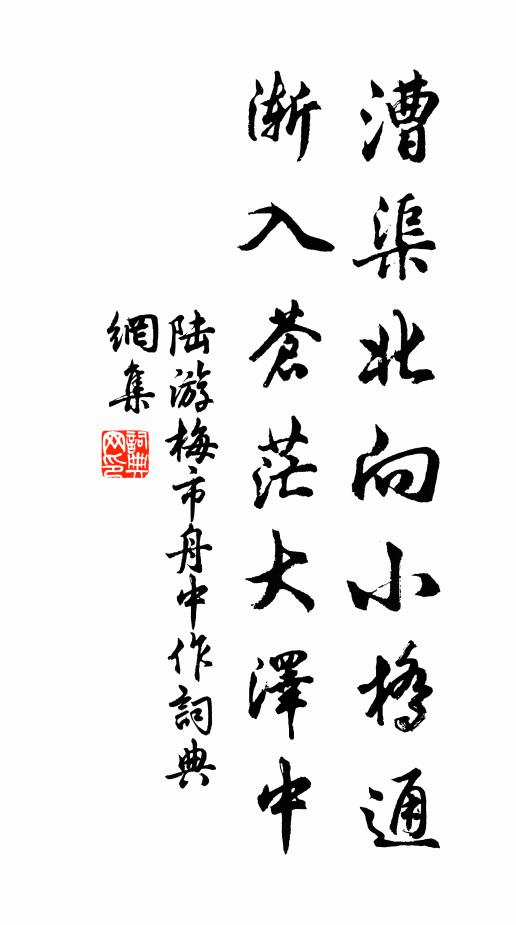 漕渠北向小橋通
漸入蒼茫大澤中
陆游梅市舟中作詞典
網集
詞典
网印